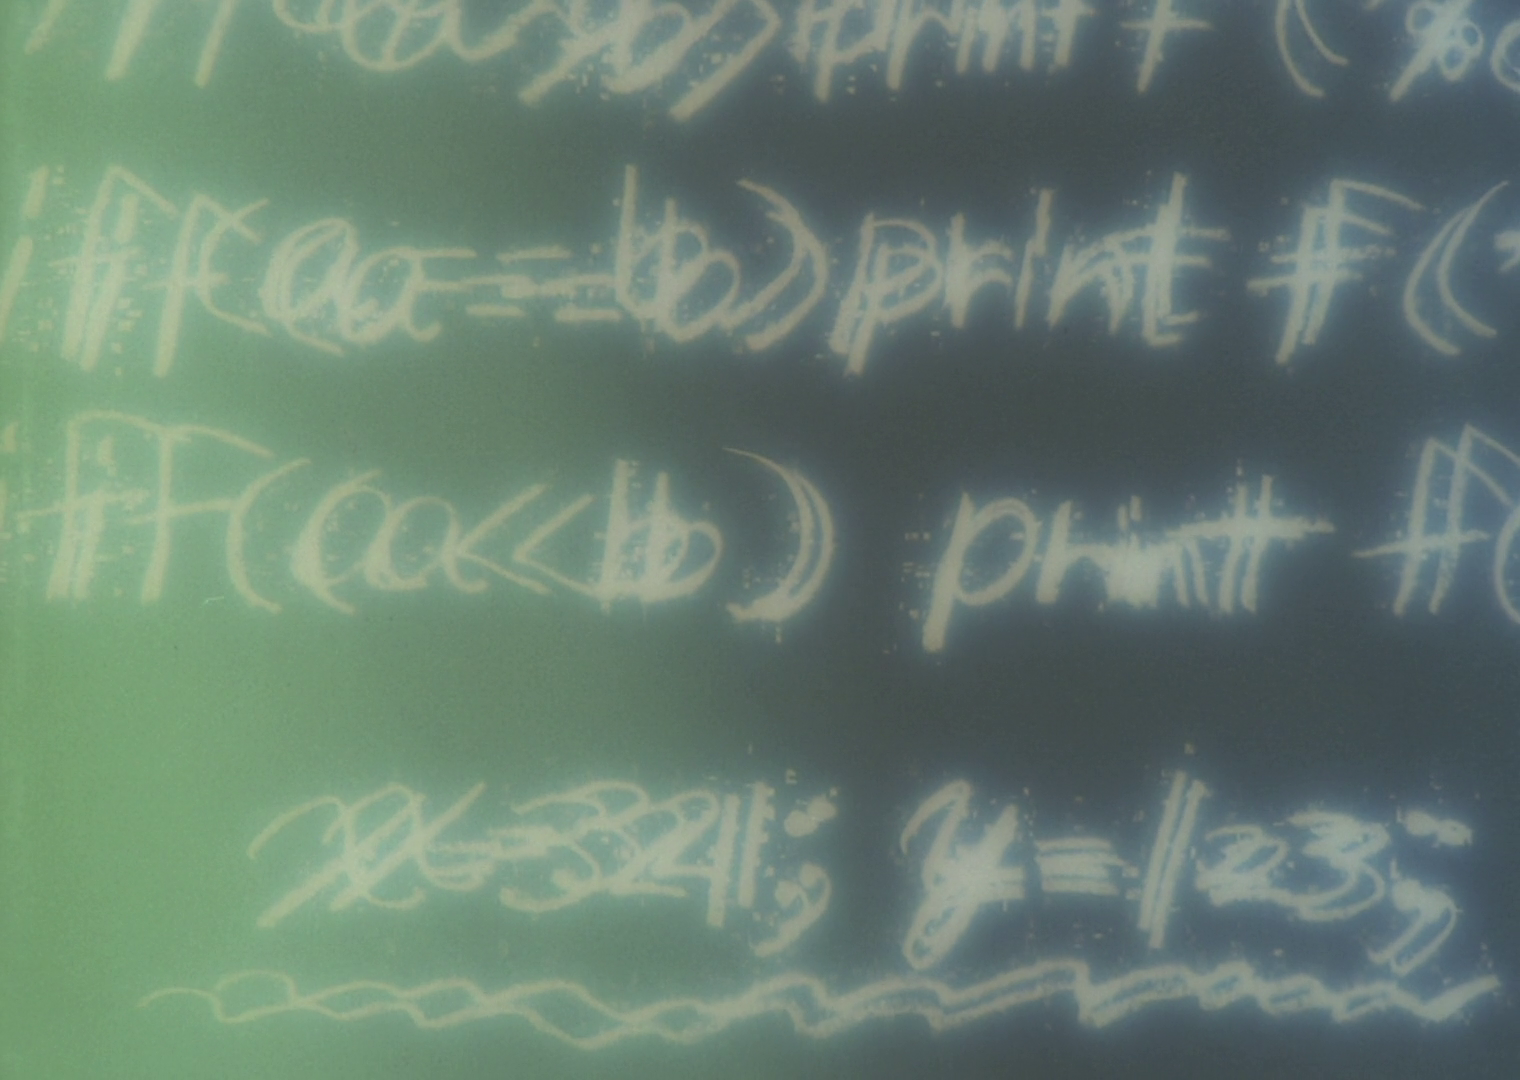 if(a>b)printf("%
if(a==b)printf("
if(a<b) printf(
x=321; y=123;